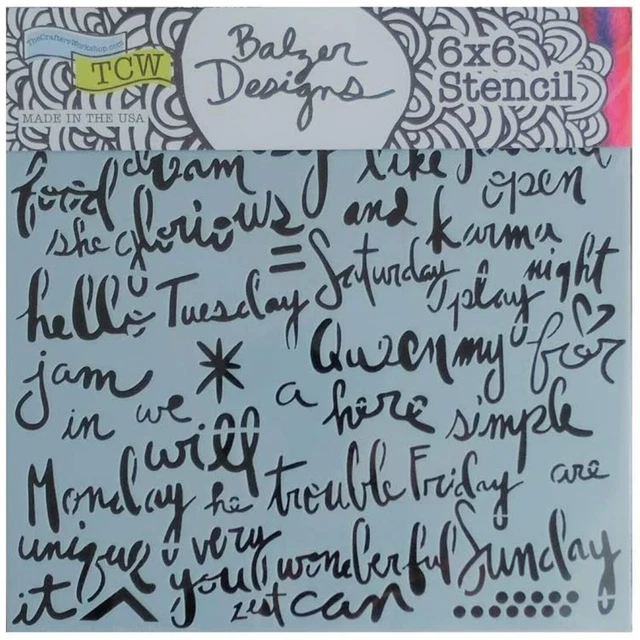 TheCraftersWorkshop.com
TCW
MADE IN THE USA
Balzer
Designs
6x6
Stencil
dream like
food open
she glorious and karma
= Saturday night
hello Tuesday play
jam * Queen my for
in we a here simple
will
Monday he trouble Friday are
unique very wonderful Sunday
it you zest can